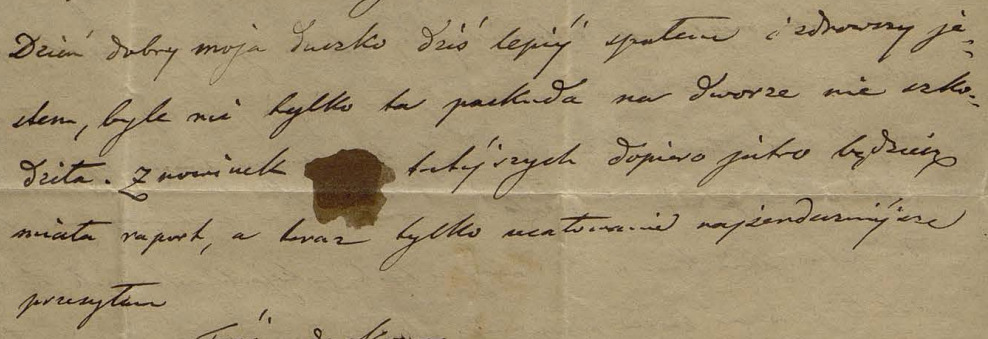 Dzień dobry moja duszko dziś lepiéj spałem i zdrowszy je-
stem, byle mi tylko ta paskuda na dworze nie szko-
dziła. Z nowinek tutéjszych dopiero jutro będziesz
miała raport, a teraz tylko ucałowanie najserdeczniéjsze
przesyłam